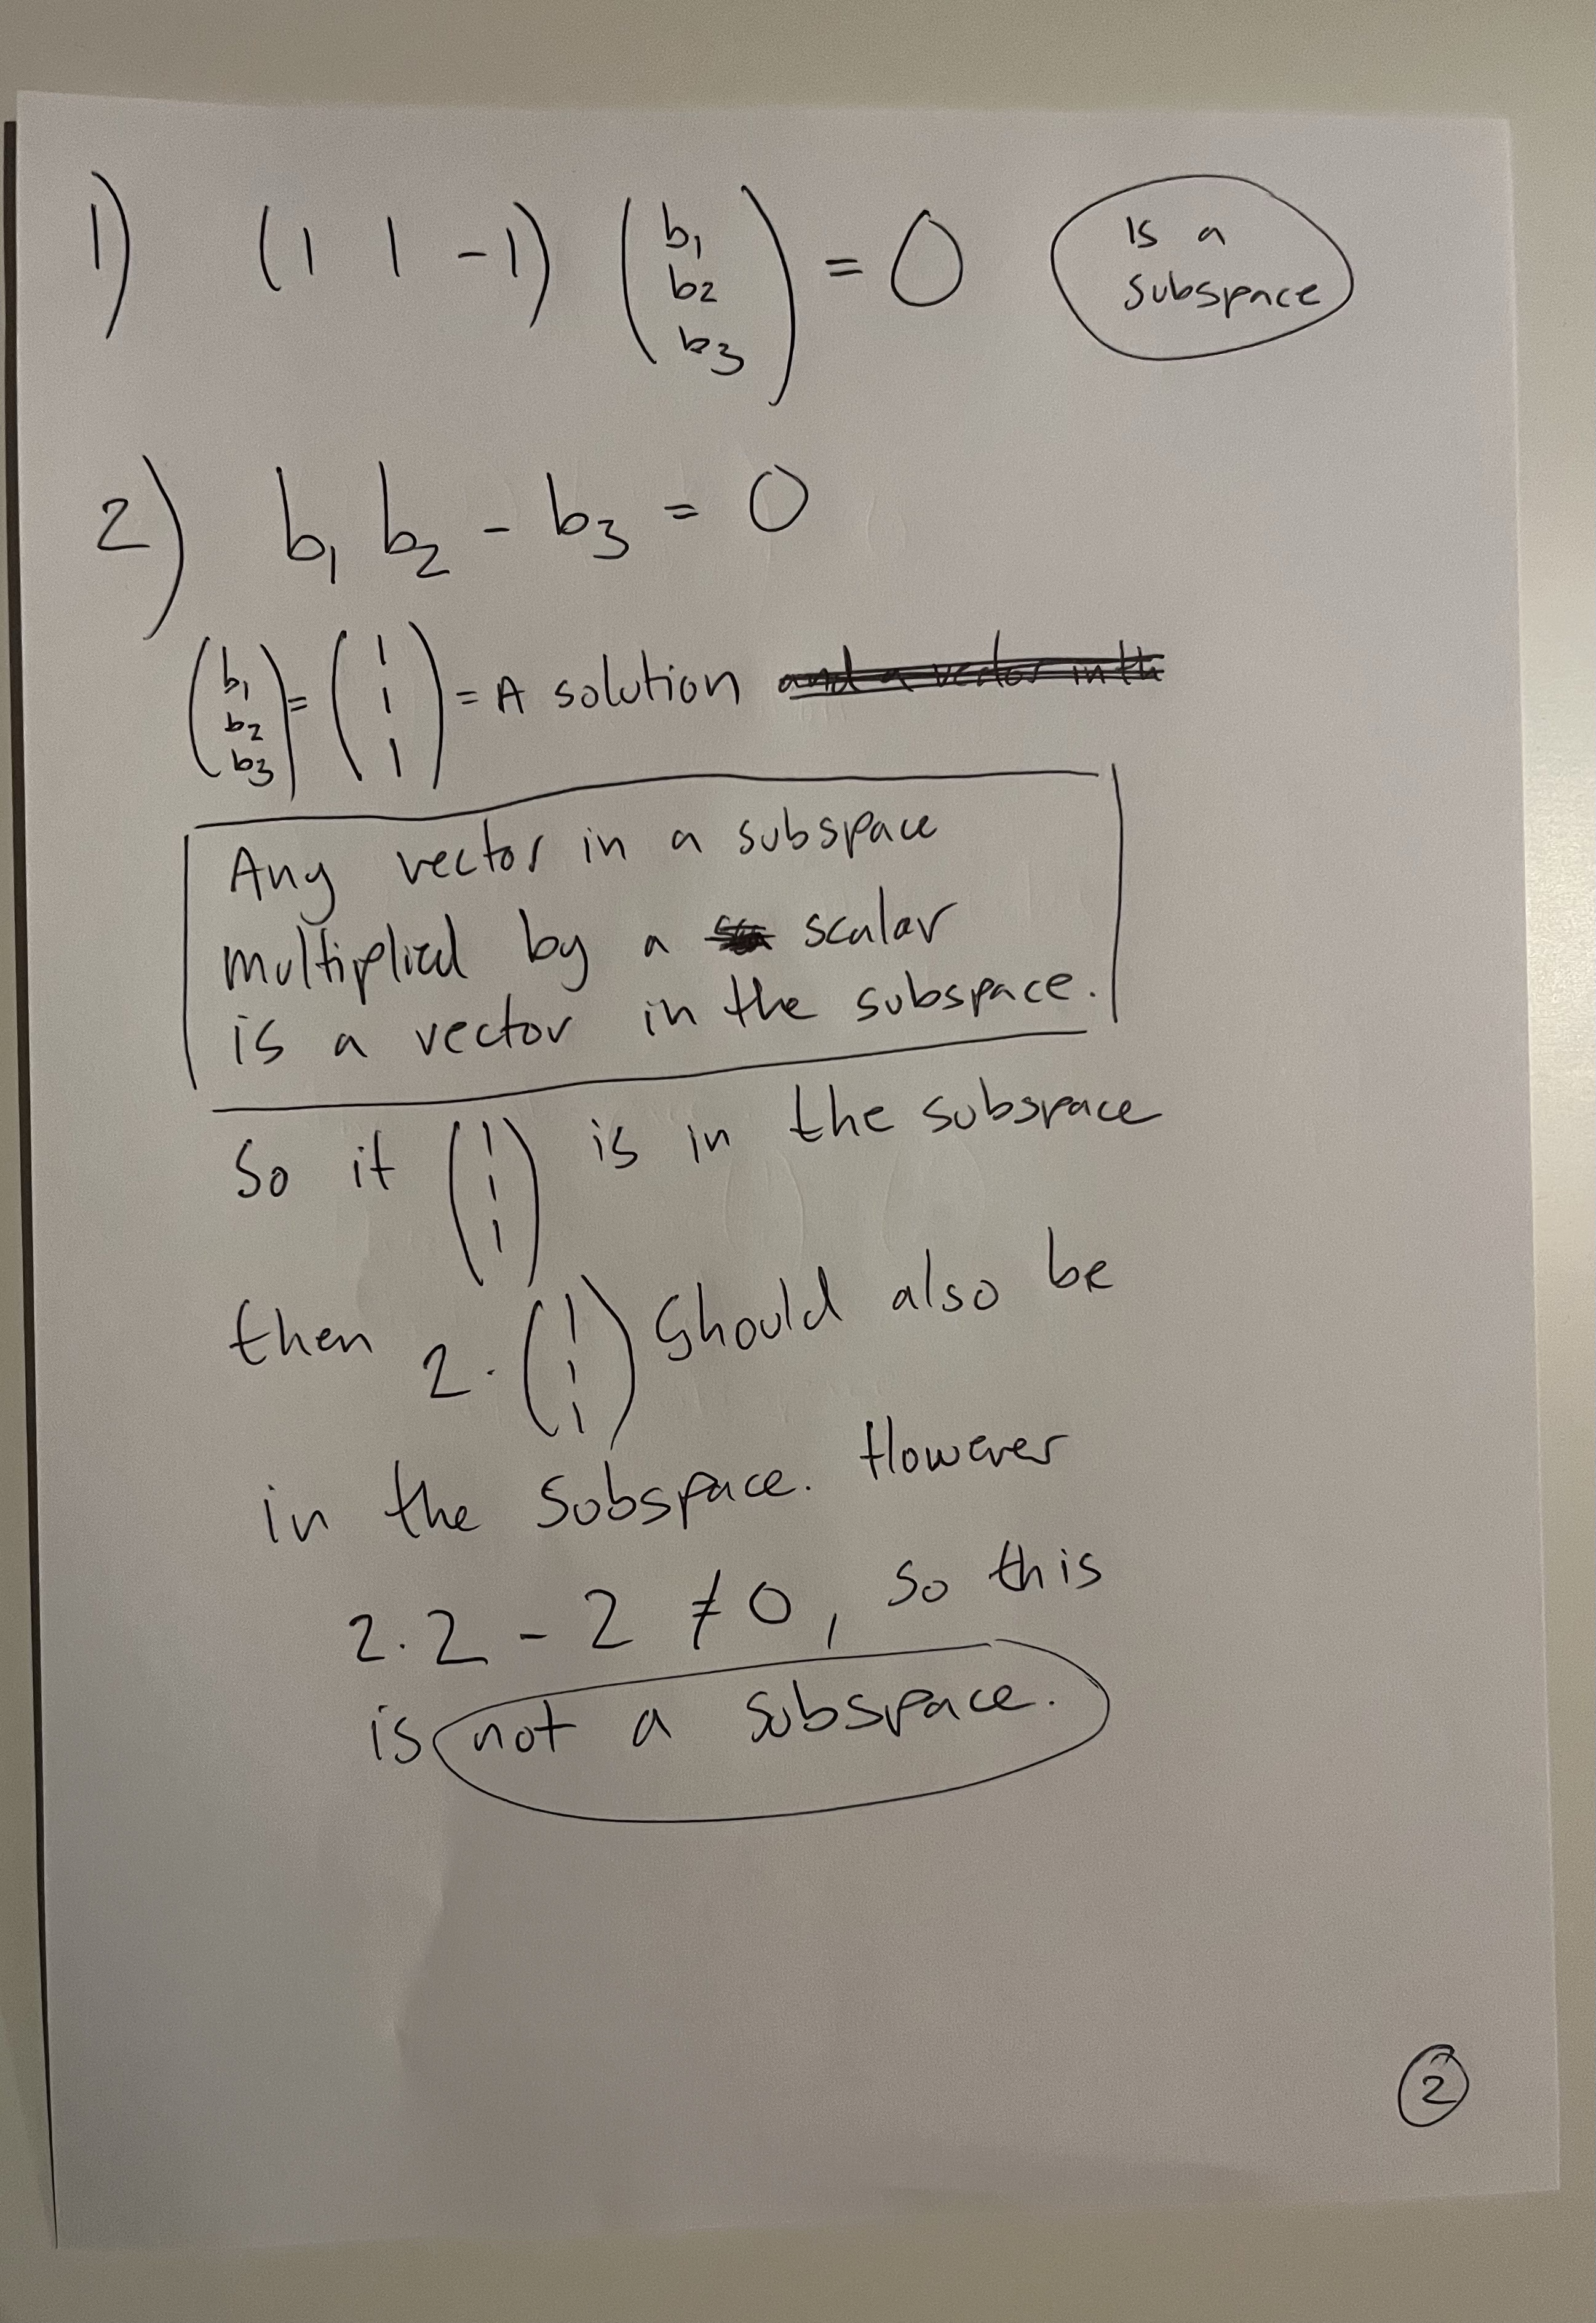 1) (1 1 -1) (b₁ b₂ b₃) = 0 Is a subspace
2) b₁ b₂ - b₃ = 0
(b₁ b₂ b₃) = (1 1 1) = A solution and a vector in th
Any vector in a subspace
multiplied by a scalar
is a vector in the subspace.
So if (1 1 1) is in the subspace
then 2·(1 1 1) should also be
in the subspace. However
2·2 - 2 ≠ 0, so this
is not a subspace.
2